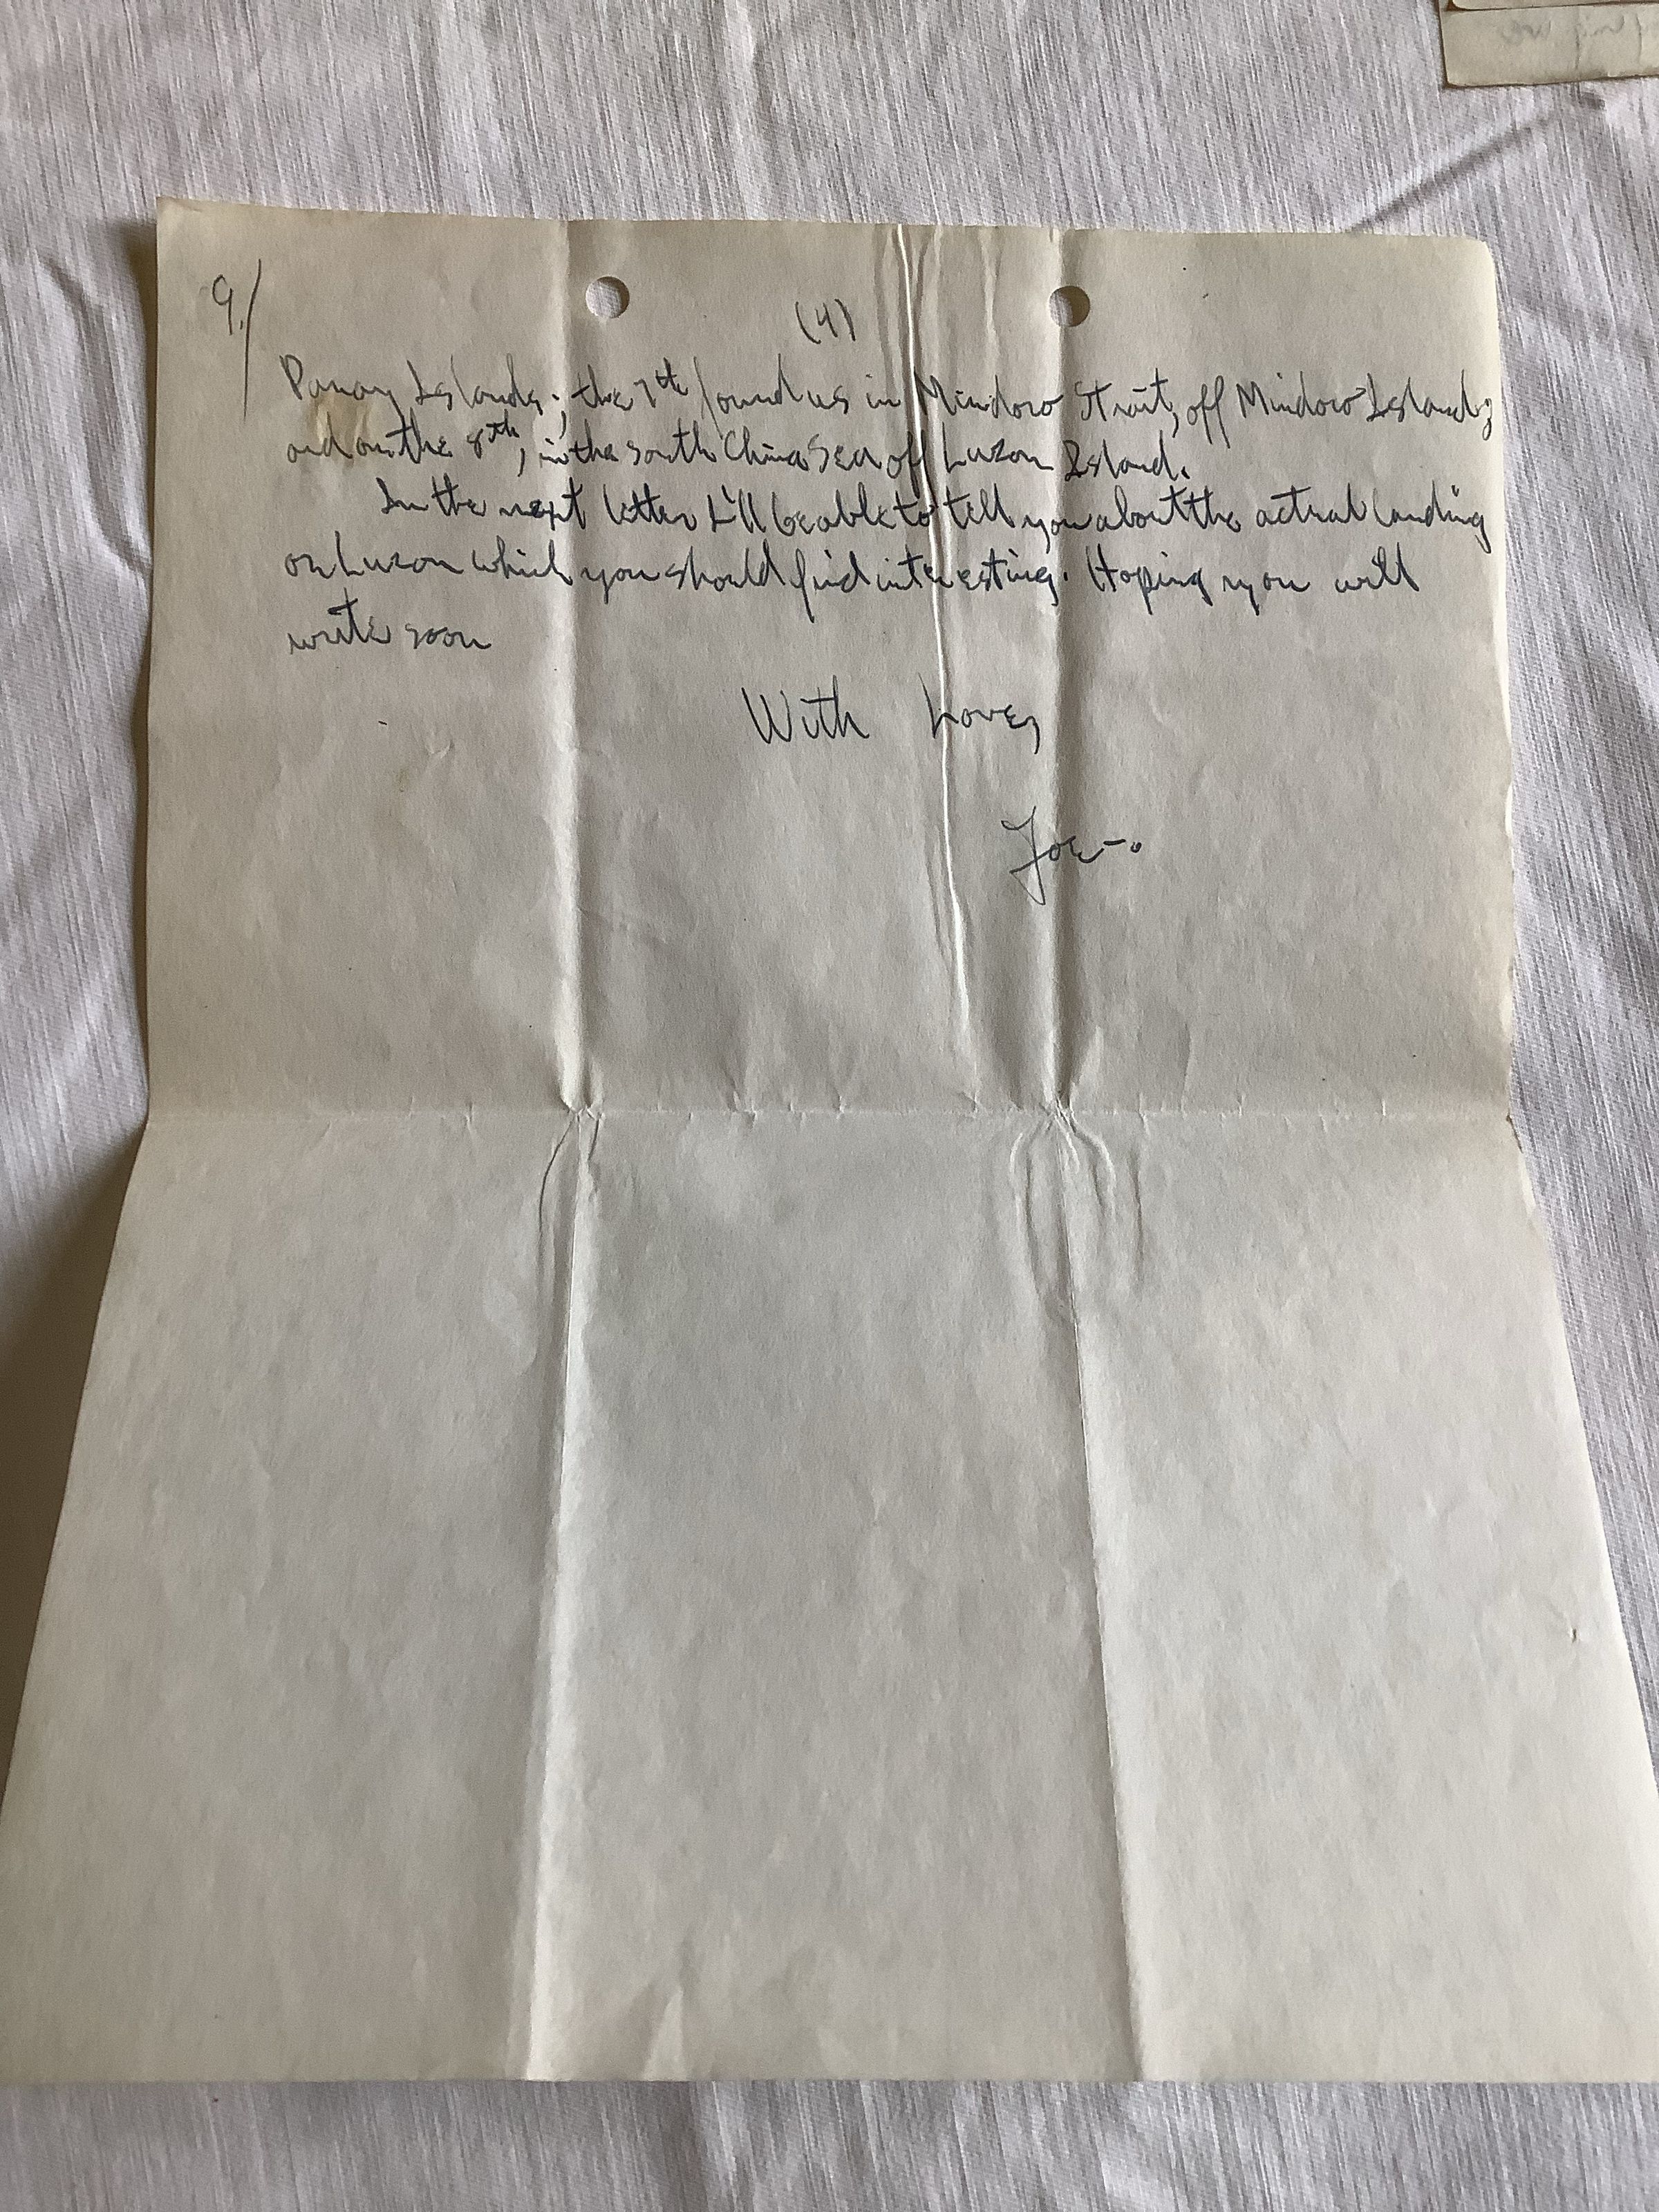 9./
(4)
Panay Islands; the 7th found us in Mindoro Strait, off Mindoro Island;
and on the 8th, in the South China Sea off Luzon Island.
In the next letter I'll be able to tell you about the actual landing
on Luzon which you should find interesting. Hoping you will
write soon
With Love,
Joe-.